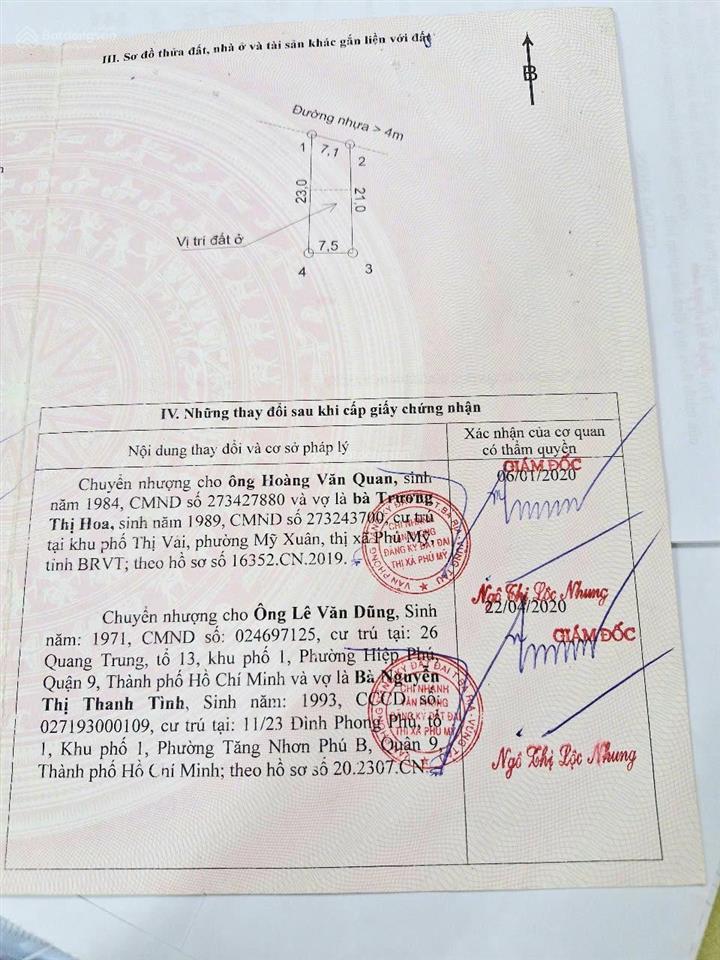 Batdongsan
III. Sơ đồ thửa đất, nhà ở và tài sản khác gắn liền với đất
B
Đường nhựa > 4m
1
7,1
2
23,0
21,0
Vị trí đất ở
7,5
4
3
IV. Những thay đổi sau khi cấp giấy chứng nhận
Nội dung thay đổi và cơ sở pháp lý
Xác nhận của cơ quan
có thẩm quyền
Chuyển nhượng cho ông Hoàng Văn Quan, sinh
năm 1984, CMND số 273427880 và vợ là bà Trương
Thị Hoa, sinh năm 1989, CMND số 273243700, cư trú
tại khu phố Thị Vải, phường Mỹ Xuân, thị xã Phú Mỹ,
tỉnh BRVT; theo hồ sơ số 16352.CN.2019.
GIÁM ĐỐC
06/01/2020
CHI NHÁNH
VĂN PHÒNG
ĐĂNG KÝ ĐẤT ĐAI
THỊ XÃ PHÚ MỸ
Ngô Thị Lộc Nhung
Chuyển nhượng cho Ông Lê Văn Dũng, Sinh
năm: 1971, CMND số: 024697125, cư trú tại: 26
Quang Trung, tổ 13, khu phố 1, Phường Hiệp Phú,
Quận 9, Thành phố Hồ Chí Minh và vợ là Bà Nguyễn
Thị Thanh Tình, Sinh năm: 1993, CCCD số:
027193000109, cư trú tại: 11/23 Đình Phong Phú, tổ
1, Khu phố 1, Phường Tăng Nhơn Phú B, Quận 9,
Thành phố Hồ Chí Minh; theo hồ sơ số 20.2307.CN
22/04/2020
GIÁM ĐỐC
CHI NHÁNH
VĂN PHÒNG
ĐĂNG KÝ ĐẤT ĐAI
THỊ XÃ PHÚ MỸ
Ngô Thị Lộc Nhung